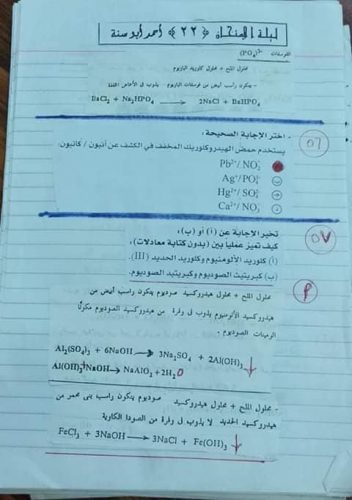 ليلة الامتحان ﴿٢٢﴾ أحمد أبو سنة
الفوسفات (PO₄)³⁻
محلول الملح + محلول كلوريد الباريوم
يتكون راسب أبيض من فوسفات الباريوم يذوب في الأحماض
BaCl₂ + Na₂HPO₄ → 2NaCl + BaHPO₄
٥٦
- اختر الإجابة الصحيحة:
يستخدم حمض الهيدروكلوريك المخفف في الكشف عن أنيون / كاتيون:
Pb²⁺/ NO₂⁻
ب Ag⁺/PO₄³⁻
Hg²⁺/ SO₄²⁻
د Ca²⁺/ NO₃⁻
٥٧
تخير الإجابة عن (أ) أو (ب):
كيف تميز عمليا بين (بدون كتابة معادلات):
(أ) كلوريد الألومنيوم وكلوريد الحديد (III).
(ب) كبريتيت الصوديوم وكبريتيد الصوديوم.
محلول الملح + محلول هيدروكسيد صوديوم يتكون راسب أبيض من
هيدروكسيد الألومنيوم يذوب في وفرة من هيدروكسيد الصوديوم مكونًا
الصوديوم.
Al₂(SO₄)₃ + 6NaOH → 3Na₂SO₄ + 2Al(OH)₃ ↓
Al(OH)₃ + NaOH → NaAlO₂ + 2H₂O
- محلول الملح + محلول هيدروكسيد صوديوم يتكون راسب بني محمر من
هيدروكسيد الحديد لا يذوب في وفرة من الصودا الكاوية
FeCl₃ + 3NaOH → 3NaCl + Fe(OH)₃ ↓